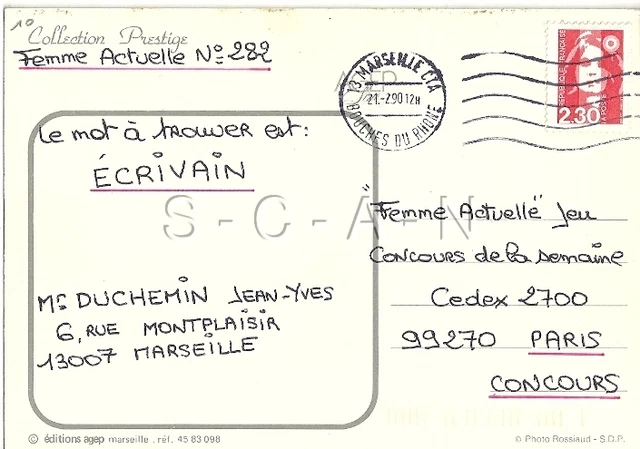 1º
Collection Prestige
Femme Actuelle Nº 282
AGEP
13 MARSEILLE CTA
21-2.90 12H
BOUCHES DU RHONE
REPUBLIQUE FRANCAISE
2.30
LA POSTE
le mot à trouver est :
ÉCRIVAIN
S-C-A-N
"Femme Actuelle" Jeu
CONCOURS de la semaine
Cedex 2700
99270 PARIS
CONCOURS
Mr DUCHEMIN JEAN-YVES
6, RUE MONTPLAISIR
13007 MARSEILLE
© éditions agep marseille . réf. 45 83 098
© Photo Rossiaud - S.D.P.